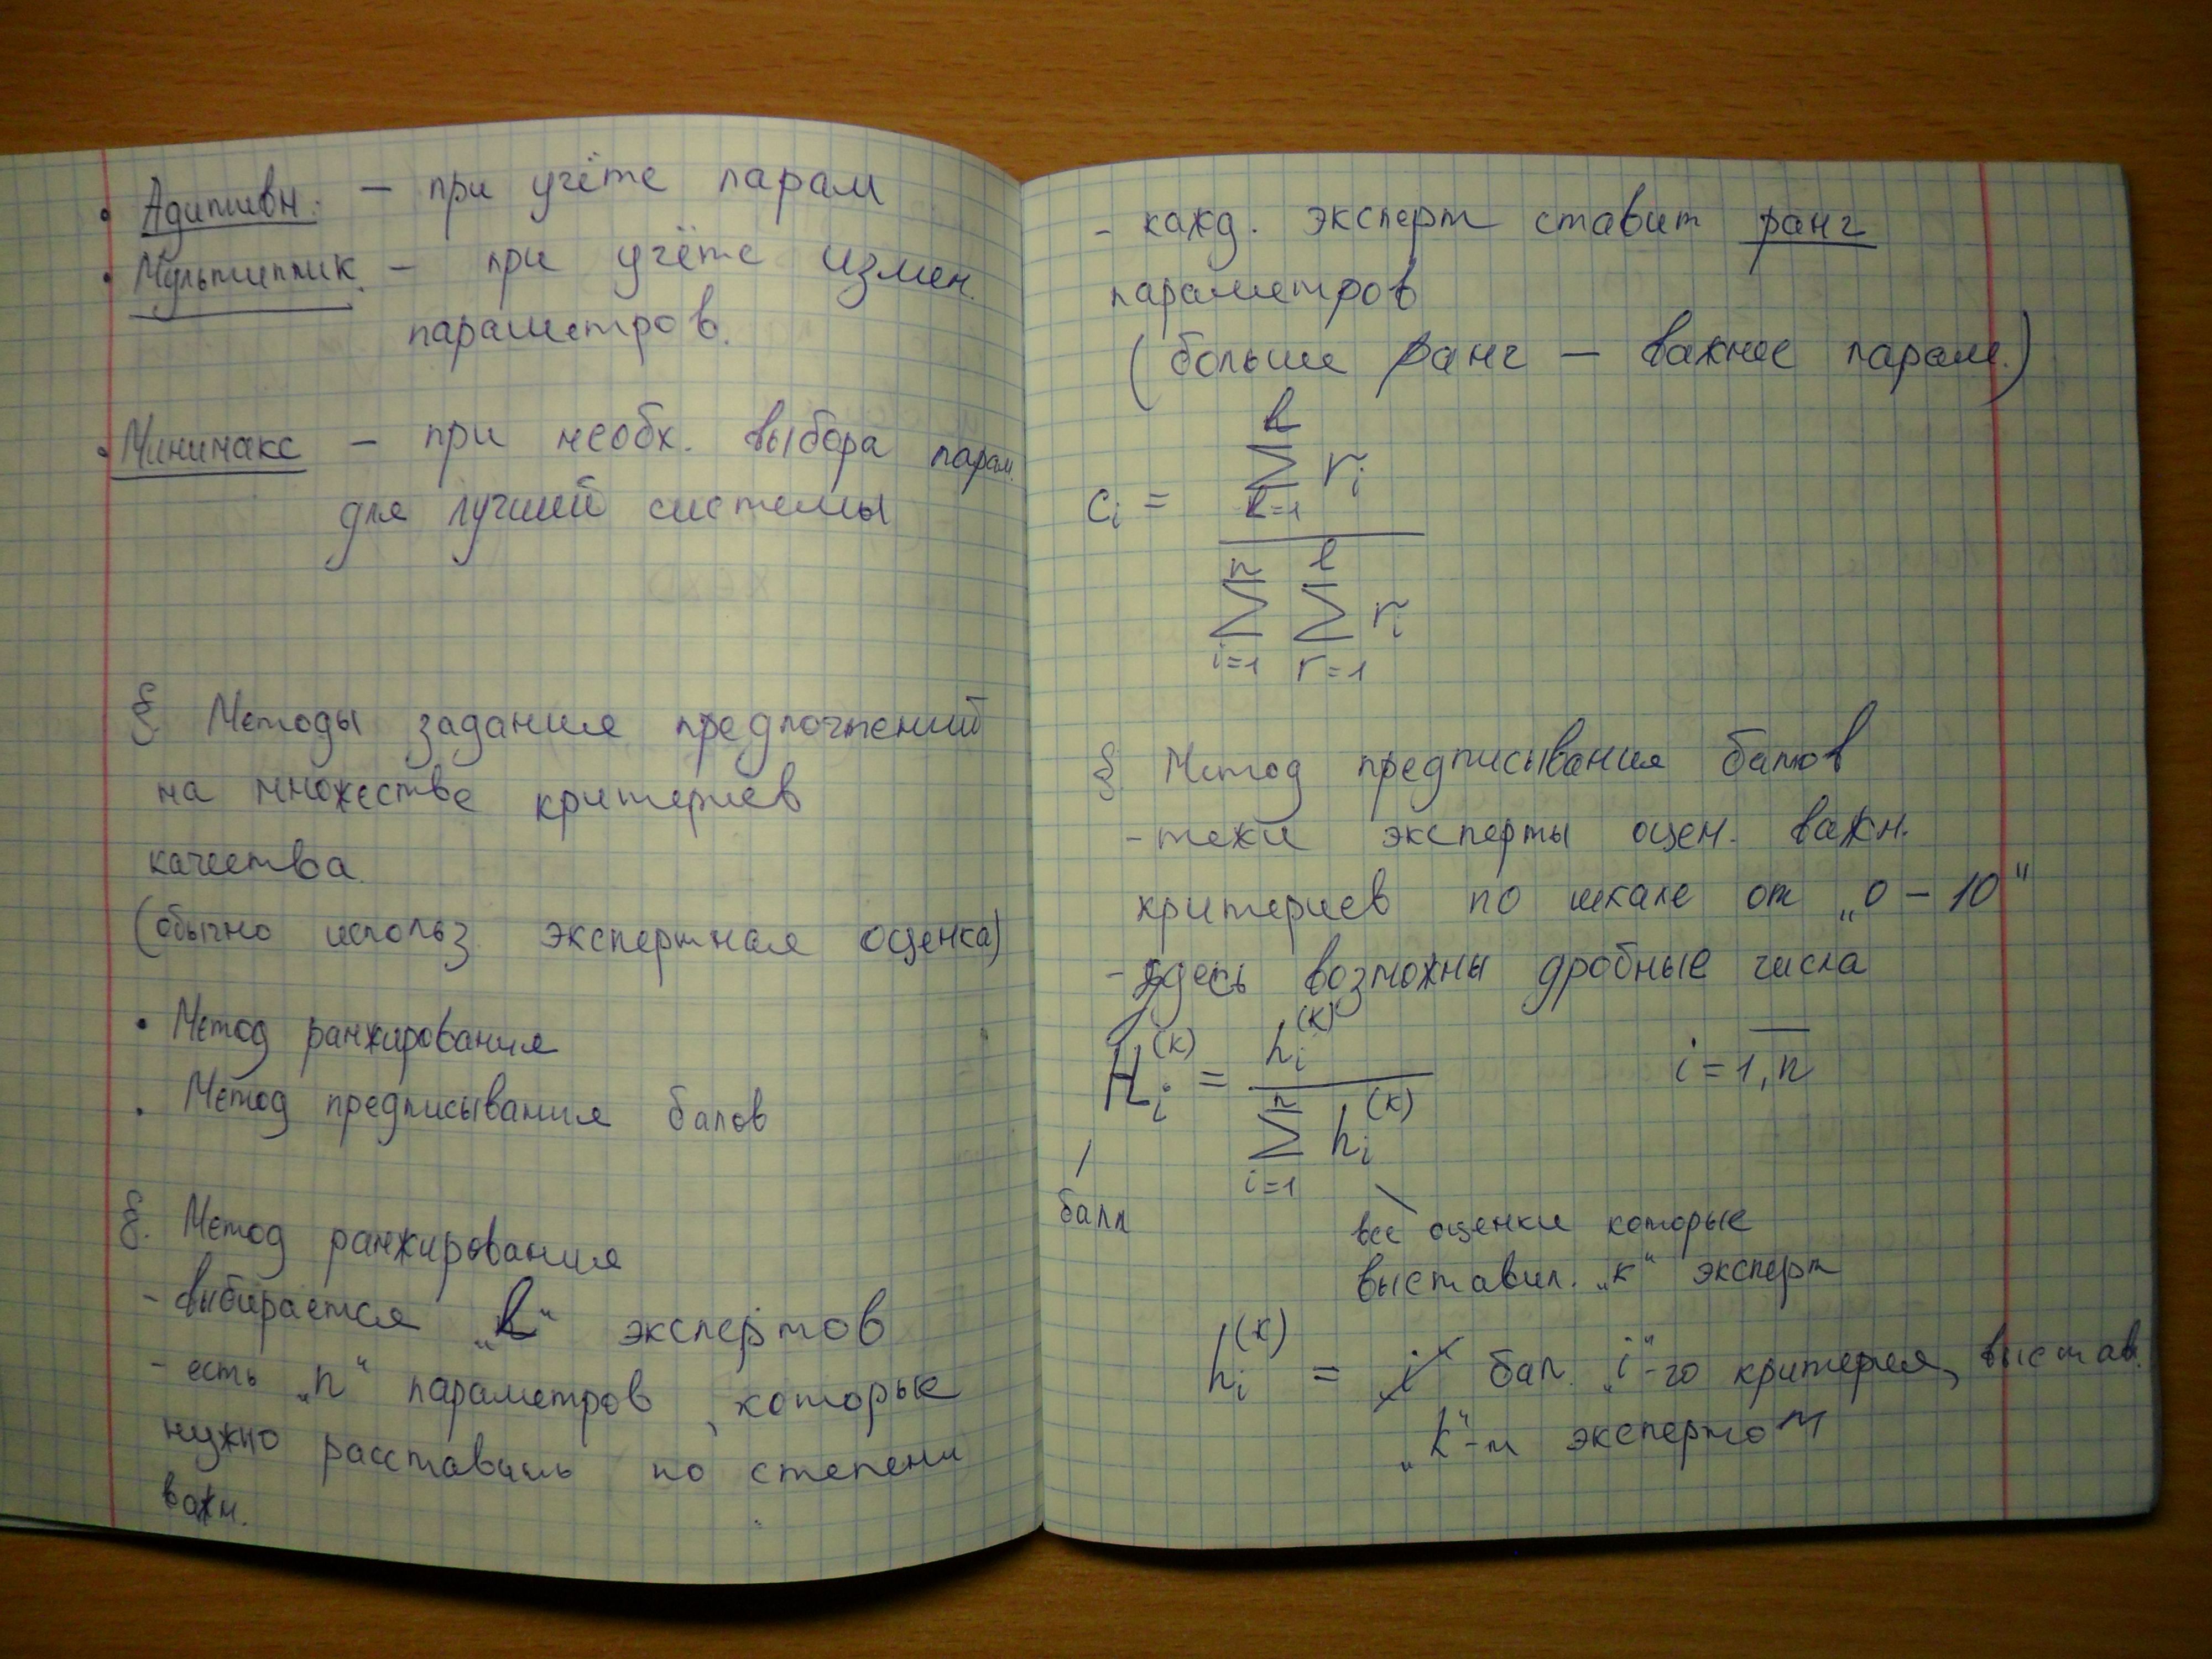 • Адитивн. – при учёте парам
• Мультиплик. – при учёте измен.
параметров.
• Минимакс – при необх. выбора парам.
для лучшей системы
§ Методы задания предпочтений
на множестве критериев
качества.
(обычно использ. экспертная оценка)
• Метод ранжирования
• Метод предписывания балов
§. Метод ранжирования
- выбирается „l“ экспертов
- есть „n“ параметров, которые
нужно расставить по степени
важн.
- кажд. эксперт ставит ранг
параметров
(больше ранг – важнее парам.)
l
∑ rᵢ
k=1
cᵢ =
n l
∑ ∑ rᵢ
i=1 r=1
§. Метод предписывания балов
- те же эксперты оцен. важн.
критериев по шкале от „0 – 10“
- здесь возможны дробные числа
Hᵢ⁽ᴷ⁾ = hᵢ⁽ᴷ⁾ / ∑ hᵢ⁽ᴷ⁾ i = 1, n
n
i=1
балл
все оценки которые
выставил. „к“ эксперт
hᵢ⁽ᴷ⁾ = бал. „i“-го критерия, выстав.
„k“-м экспертом